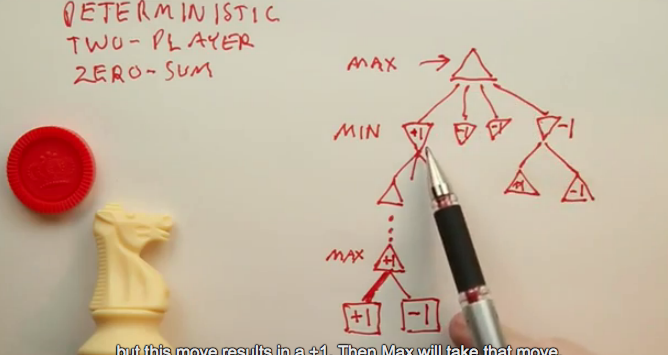 DETERMINISTIC
TWO-PLAYER
ZERO-SUM
MAX
MIN +1 -1 -1 -1
+1 -1
MAX +1
+1 -1
but this move results in a +1. Then Max will take that move